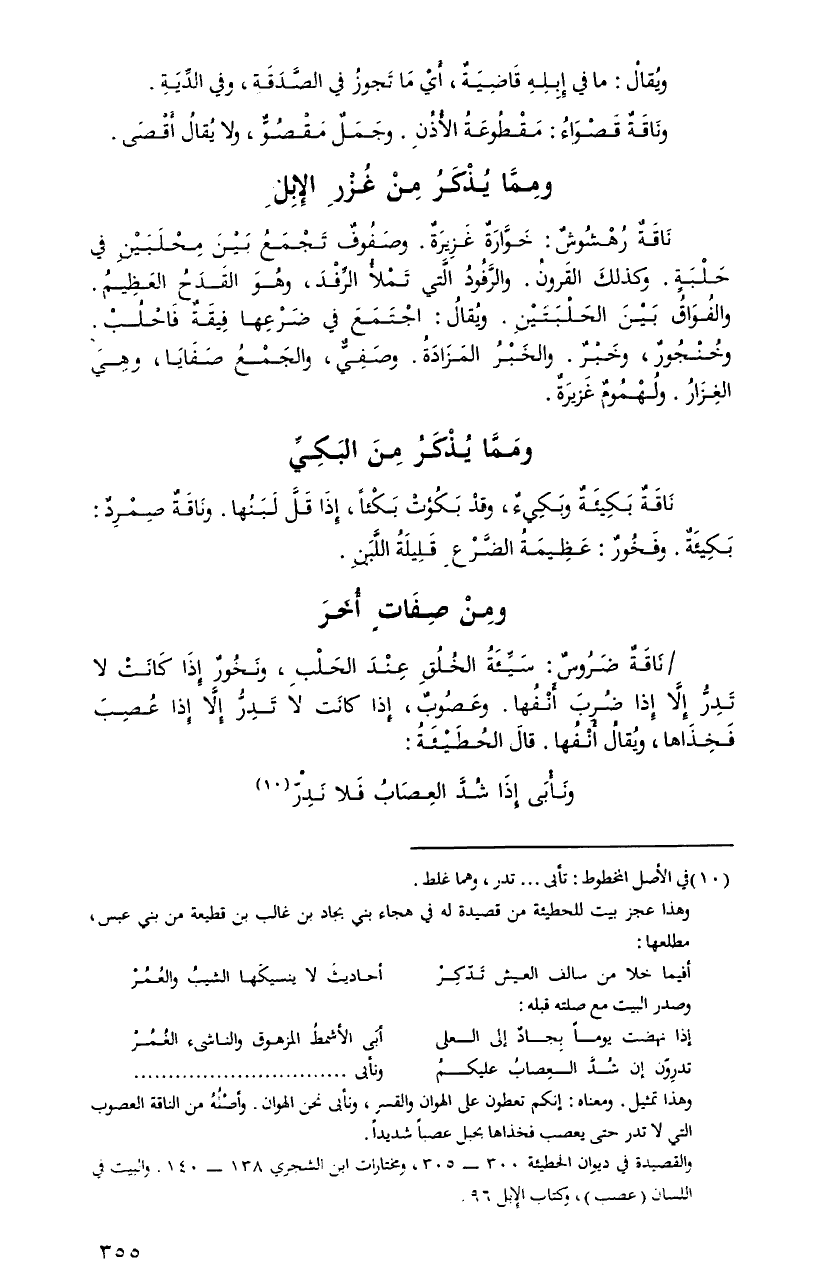 ويُقالُ : ما في إبِلِهِ قَاضِيَةٌ ، أَيْ مَا تَجوزُ في الصَّدَقَة ، وفي الدِّيَةِ .
ونَاقَةٌ قَصْوَاءُ : مَقْطوعَةُ الأُذُنِ . وجَمَلٌ مَقْصُوٌّ ، ولا يُقالُ أَقْصَى .
ومِمَّا يُذْكَرُ مِنْ غُزْرِ الإِبِلِ
نَاقَةٌ رُهْشُوشٌ : خَوَّارَةٌ غَزِيرَةٌ . وصَفُوفٌ تَجْمَعُ بَيْنَ مِحْلَبَيْنِ في
حَلْبَةٍ . وكَذلكَ القَرونُ . والرَّفُودُ الَّتي تَمْلأُ الرِّفْدَ ، وهُوَ القَدَحُ العَظِيمُ .
والفُوَاقُ بَيْنَ الحَلْبَتَيْنِ . ويُقالُ : اجْتَمَعَ في ضَرْعِها فِيقَةٌ فَاحْلُبْ .
وخُنْجُورٌ ، وخَبْرٌ . والخَبْرُ المَزَادَةُ . وصَفِيٌّ ، والجَمْعُ صَفَايَا ، وهِيَ
الغِزَارُ . ولُهْمُومٌ غَزيرَةٌ .
ومَمَّا يُذْكَرُ مِنَ البَكِيِّ
نَاقَةٌ بَكِيئَةٌ وبَكِيءٌ ، وقدْ بَكُؤَتْ بَكْئاً ، إذَا قَلَّ لَبَنُها . ونَاقَةٌ صِمْرِدٌ :
بَكِيئَةٌ . وفَخُورٌ : عَظِيمَةُ الضَّرْعِ قَلِيلَةُ اللَّبَنِ .
ومِنْ صِفَاتٍ أُخَرَ
/ نَاقَةٌ ضَرُوسٌ : سَيِّئَةُ الخُلُقِ عِنْدَ الحَلْبِ ، ونَخُورٌ إِذَا كَانَتْ لا
تَدِرُّ إِلَّا إذا ضُرِبَ أَنْفُها . وعَصُوبٌ ، إذا كانَت لا تَدِرُّ إِلَّا إذا عُصِبَ
فَخِذَاها ، ويُقالُ أَنْفُها . قالَ الحُطَيْئَةُ :
ونَأْبَى إِذَا شُدَّ العِصَابُ فَلا نَدِرّْ (١٠)
(١٠) في الأصل المخطوط : تأبى ... تدر ، وهما غلط .
وهذا عجز بيت للحطيئة من قصيدة له في هجاء بني بجاد بن غالب بن قطيعة من بني عبس ،
مطلعها :
أفيما خلا من سالف العيش تَدّكِرْ أحاديثَ لا ينسيكَها الشيبُ والعُمُرْ
وصدر البيت مع صلته قبله :
إذا نهضت يوماً بِجادٌ إلى العلى أبَى الأشمطُ المزهوق والناشىء الغُمُرْ
تدرّون إن شُدَّ العِصابُ عليكمُ ونأبى .............................
وهذا تمثيل . ومعناه : إنكم تعطون على الهوان والقسر ، ونأبى نحن الهوان . وأصْلُهُ من الناقة العصوب
التي لا تدر حتى يعصب فخذاها بحبل عصباً شديداً .
والقصيدة في ديوان الحطيئة ٣٠٠ ــ ٣٠٥ ، ومختارات ابن الشجري ١٣٨ ــ ١٤٠ . والبيت في
اللسان ( عصب ) ، وكتاب الإبل ٩٦ .
٣٥٥